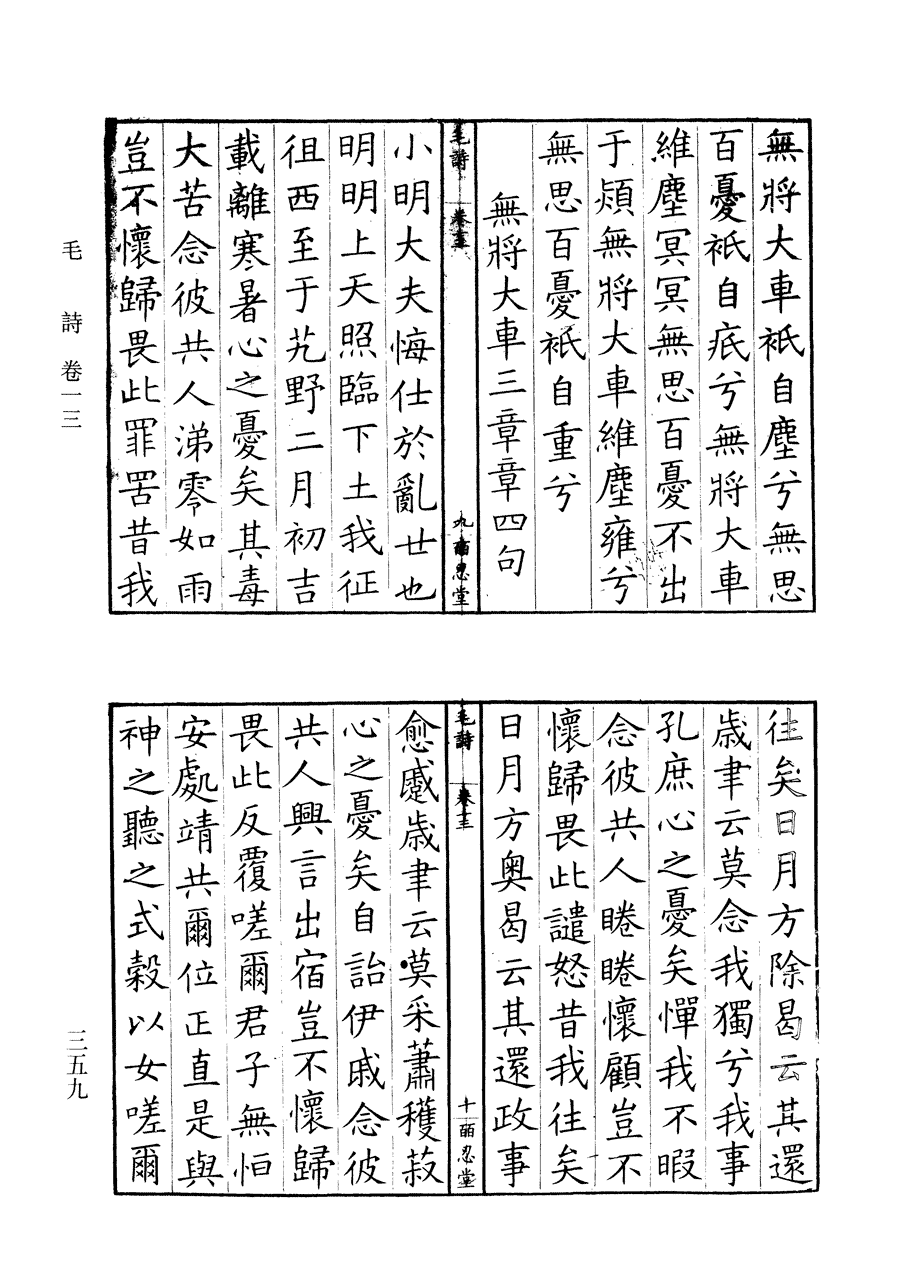 無將大車祇自塵兮無思
百憂祇自疧兮無將大車
維塵冥冥無思百憂不出
于熲無將大車維塵雍兮
無思百憂祇自重兮
無將大車三章章四句
毛詩 卷十三 九 皕忍堂
小明大夫悔仕於亂廿也
明明上天照臨下土我征
徂西至于艽野二月初吉
載離寒暑心之憂矣其毒
大苦念彼共人涕零如雨
豈不懷歸畏此罪罟昔我
往矣日月方除曷云其還
歲聿云莫念我獨兮我事
孔庶心之憂矣憚我不暇
念彼共人睠睠懷顧豈不
懷歸畏此譴怒昔我往矣
日月方奧曷云其還政事
毛詩 卷十三 十 皕忍堂
愈蹙歲聿云莫采蕭穫菽
心之憂矣自詒伊戚念彼
共人興言出宿豈不懷歸
畏此反覆嗟爾君子無恒
安處靖共爾位正直是與
神之聽之式穀以女嗟爾
毛詩卷一三
三五九